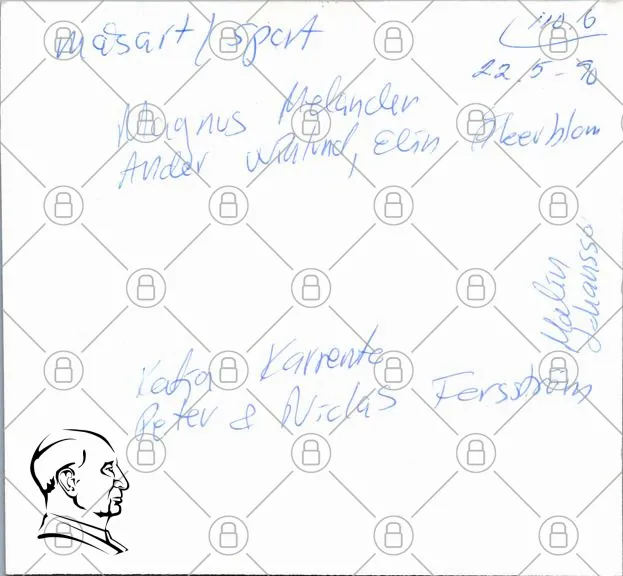 måsart / sport
22.5-90
Magnus Melander
Ander Wiklund, Elin Åkerblom
Malin
Johansso
Katja Karrento
Peter & Niclas Forsström